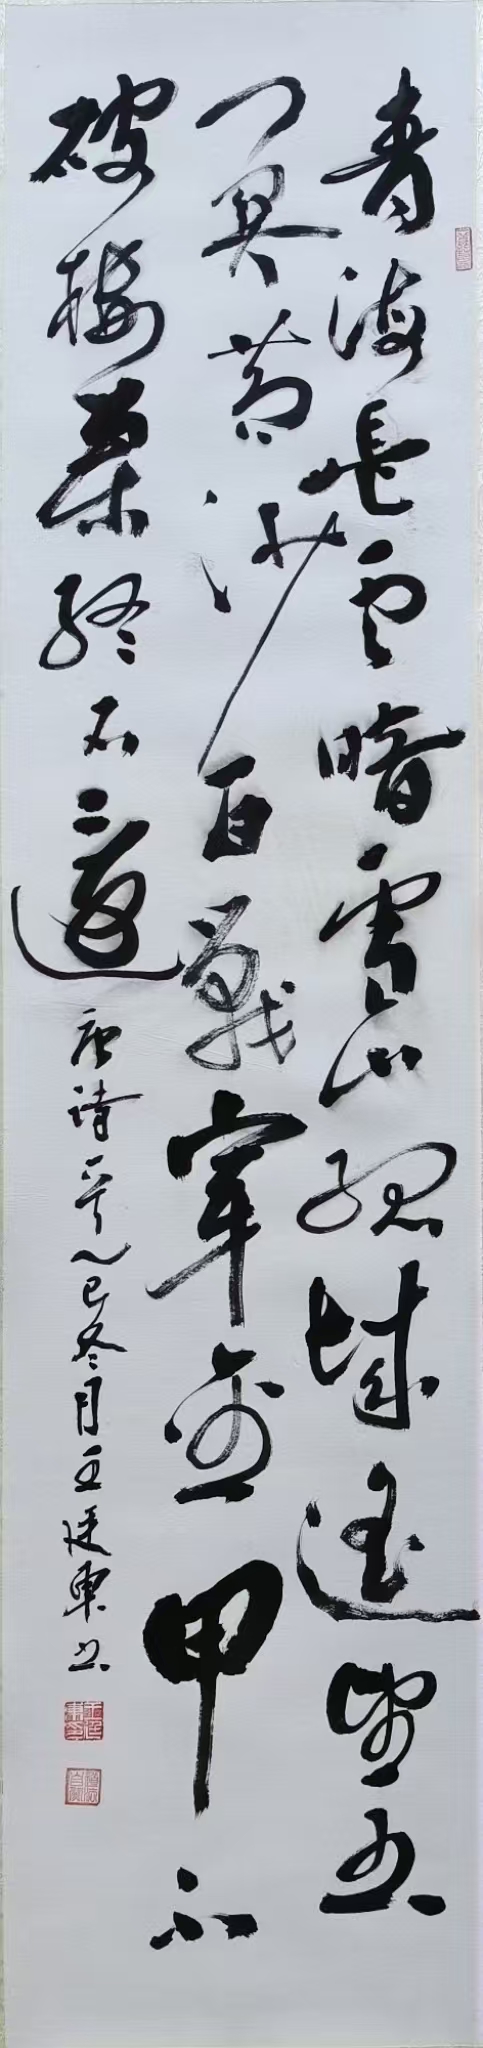 青海長雲暗雪山孤城遥望玉
门关黄沙百戰穿金甲不
破楼蘭终不還
唐诗一首乙巳冬月王廷東书